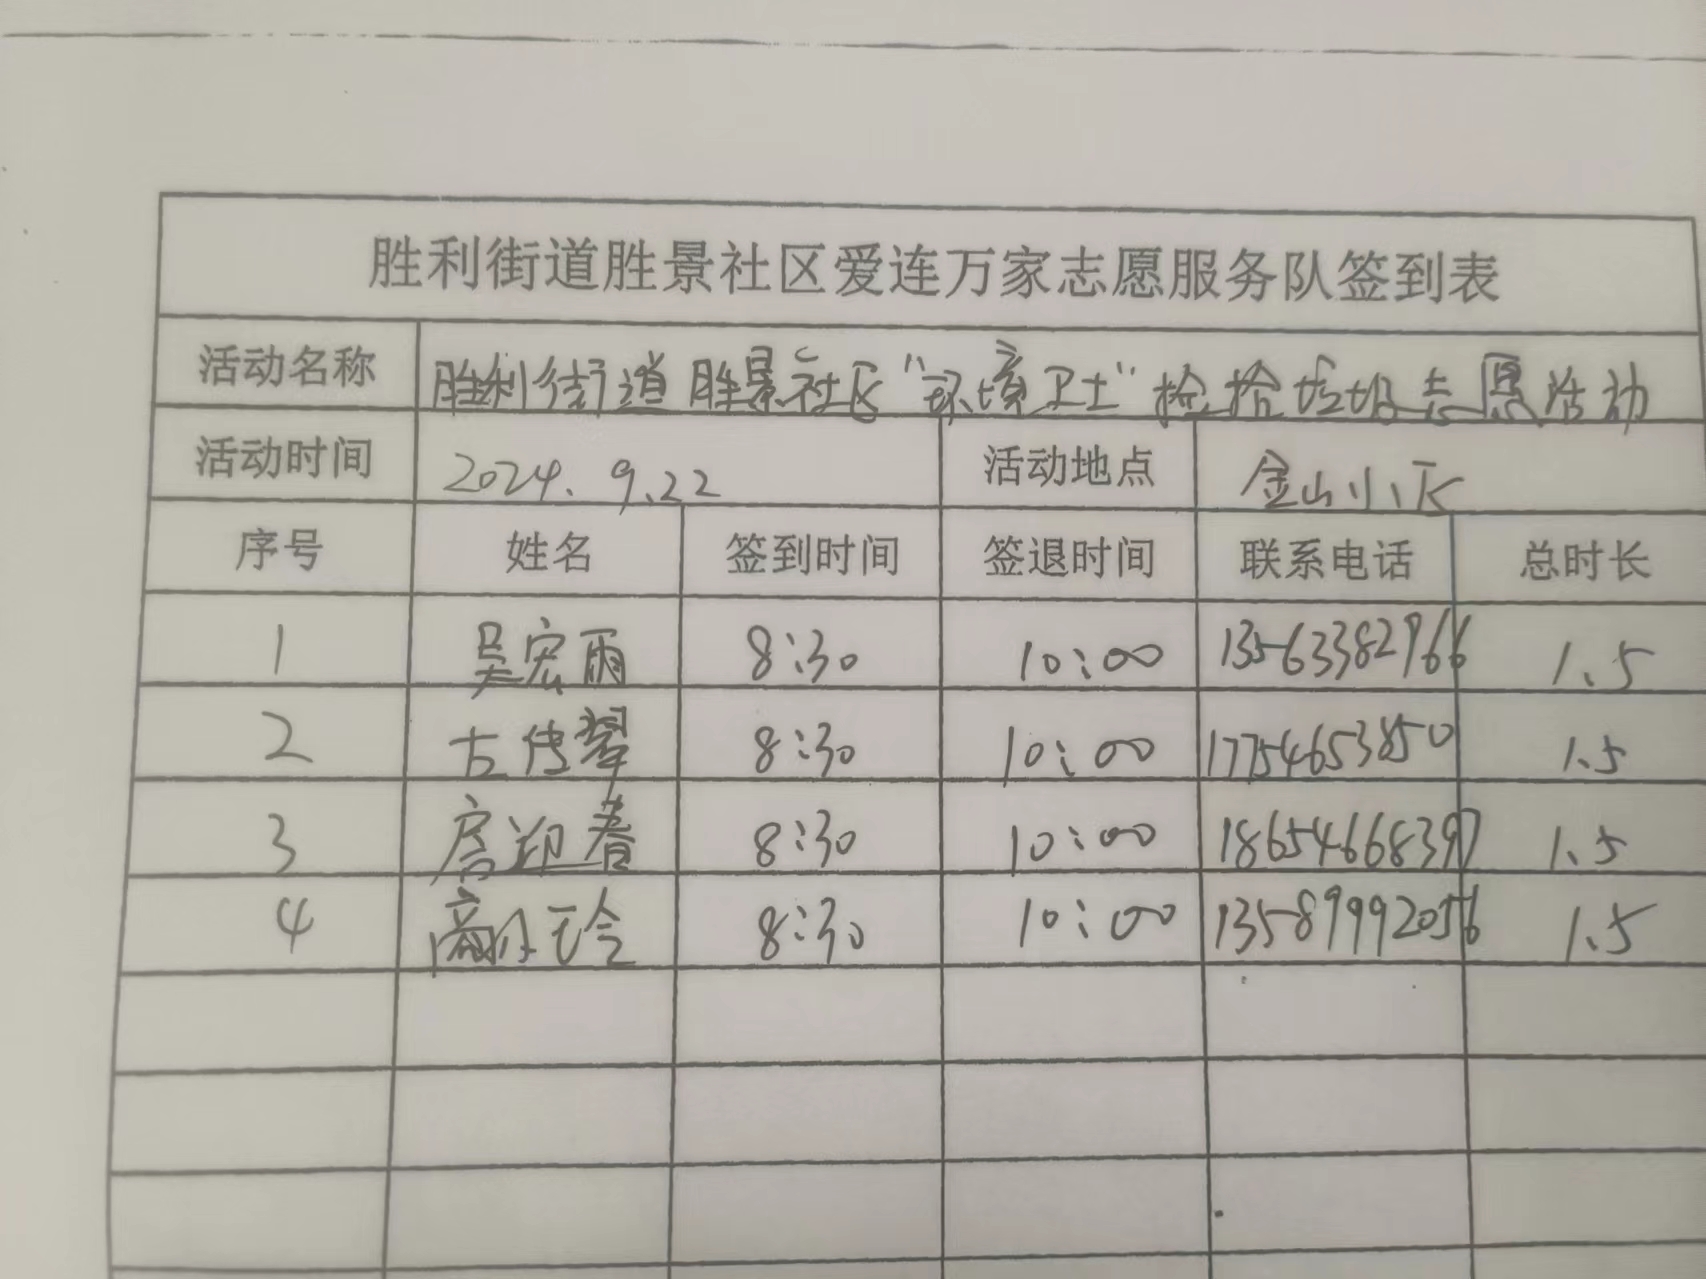 胜利街道胜景社区爱连万家志愿服务队签到表
活动名称 胜利街道胜景社区“环境卫士”捡拾垃圾志愿活动
活动时间 2024.9.22 活动地点 金山小区
序号 姓名 签到时间 签退时间 联系电话 总时长
1 吴宏雨 8:30 10:00 13563382966 1.5
2 古传翠 8:30 10:00 17754653850 1.5
3 房迎春 8:30 10:00 18654668397 1.5
4 8:30 10:00 13589992056 1.5